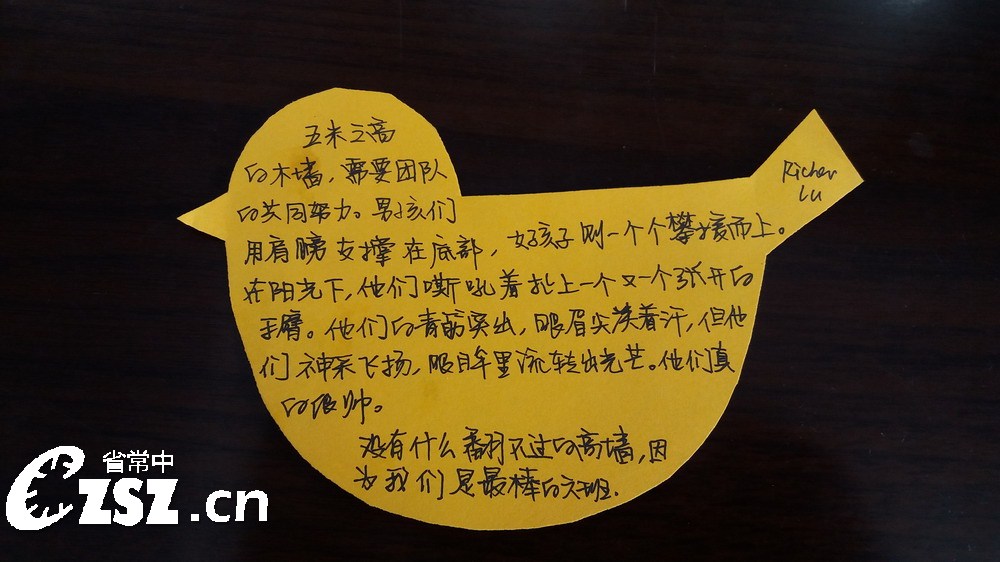 五米之高
的木墙，需要团队
的共同努力。男孩们
用肩膀支撑在底部，女孩子则一个个攀援而上。
在阳光下，他们嘶吼着扯上一个又一个张开的
手臂。他们的青筋突出，眼眉尖淡着汗，但他
们神采飞扬，眼眸里流转出光芒。他们真
的很帅。
没有什么翻不过的高墙，因
为我们是最棒的六班.
Richer
Lu
省常中
CZSZ.cn